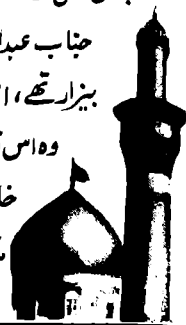 جناب عبدا
بیزار تھے، ا
وہ اس
خا